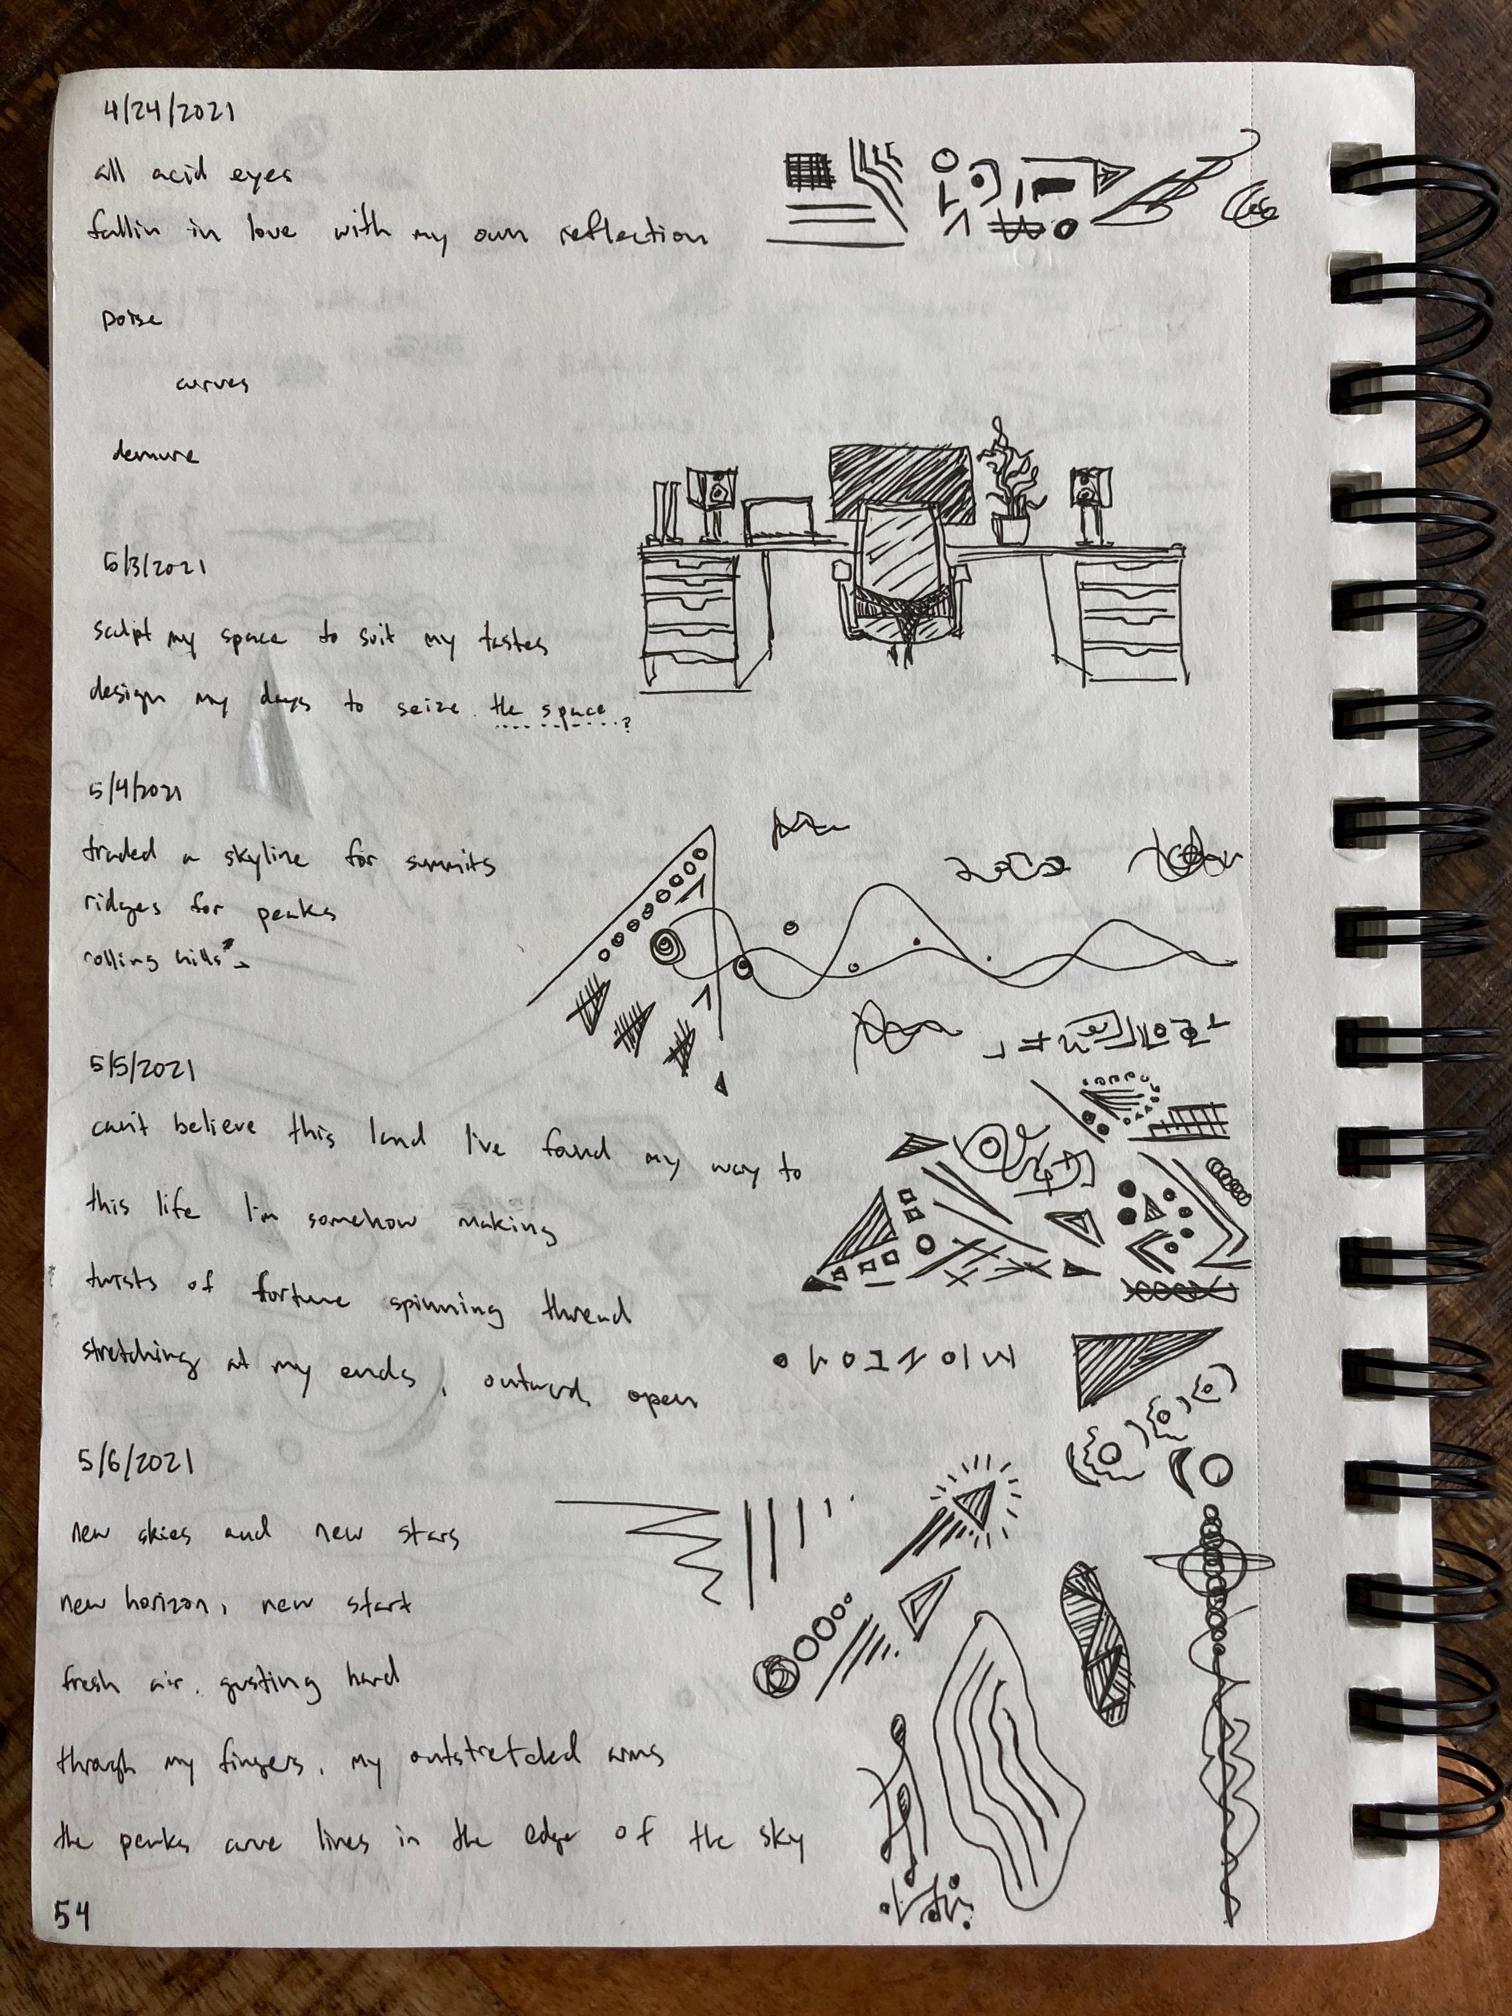 4/24/2021
all acid eyes
fallin in love with my own reflection
poise
curves
demure
5/3/2021
sculpt my space to suit my tastes
design my days to seize the space?
5/4/2021
traded a skyline for summits
ridges for peaks
rolling hills
5/5/2021
can't believe this land I've found my way to
this life I'm somehow making
twists of fortune spinning thread
stretching at my ends, outward, open
5/6/2021
new skies and new stars
new horizon, new start
fresh air, gusting hard
through my fingers, my outstretched arms
the peaks carve lines in the edge of the sky
54